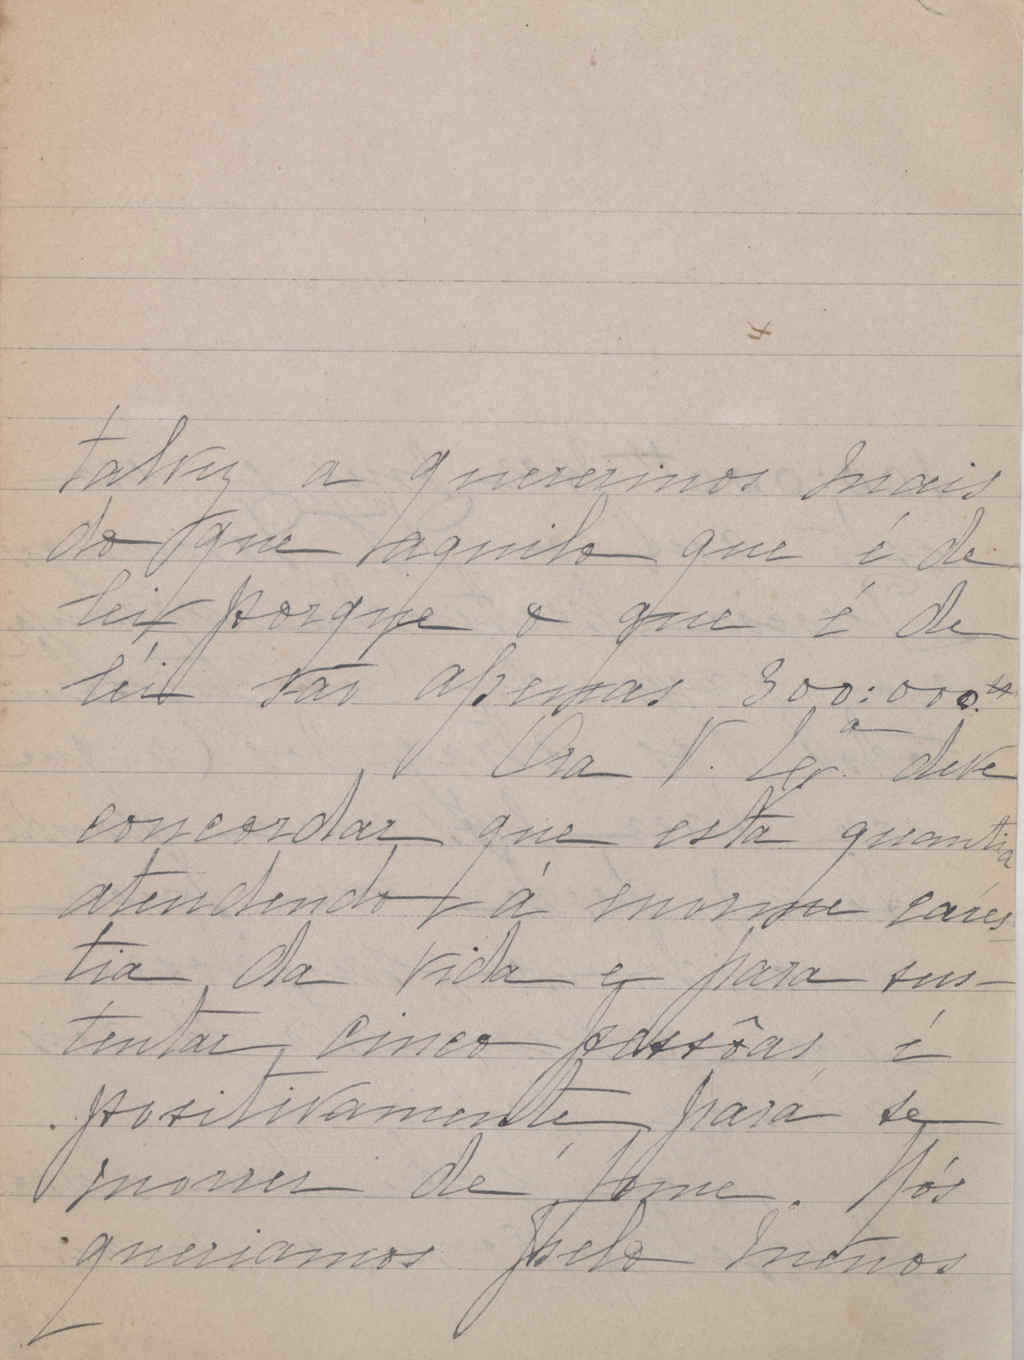 talvez a querermos mais
do que aquilo que é de
lei porque o que é de
léi são apenas 300:000.
Ora V. Ex.ª deve
concordar que esta quantia
atendendo á enorme cares
tia da vida e para sus-
tentar cinco passôas é
positivamente para se
morrer de fome. Nós
queriamos pelo menos